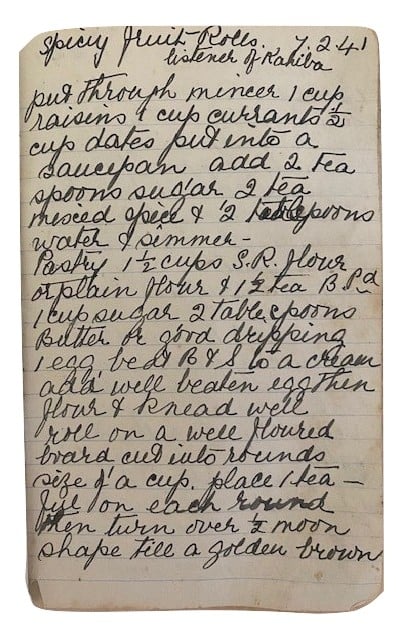 Spicy Fruit Rolls. 7.2.41
listener of Kahiba
put through mincer 1 cup
raisins 1 cup currants ½
cup dates put into a
saucepan add 2 tea
spoons sugar 2 tea
mixed spice & 2 tablespoons
water & simmer -
Pastry 1½ cups S.R. flour
or plain flour & 1½ tea B.Pd
1 cup sugar 2 tablespoons
Butter or good dripping
1 egg beat B & S to a cream
add well beaten egg then
flour & knead well
roll on a well floured
board cut into rounds
size of a cup. place 1 tea -
full on each round
then turn over ½ moon
shape till a golden brown